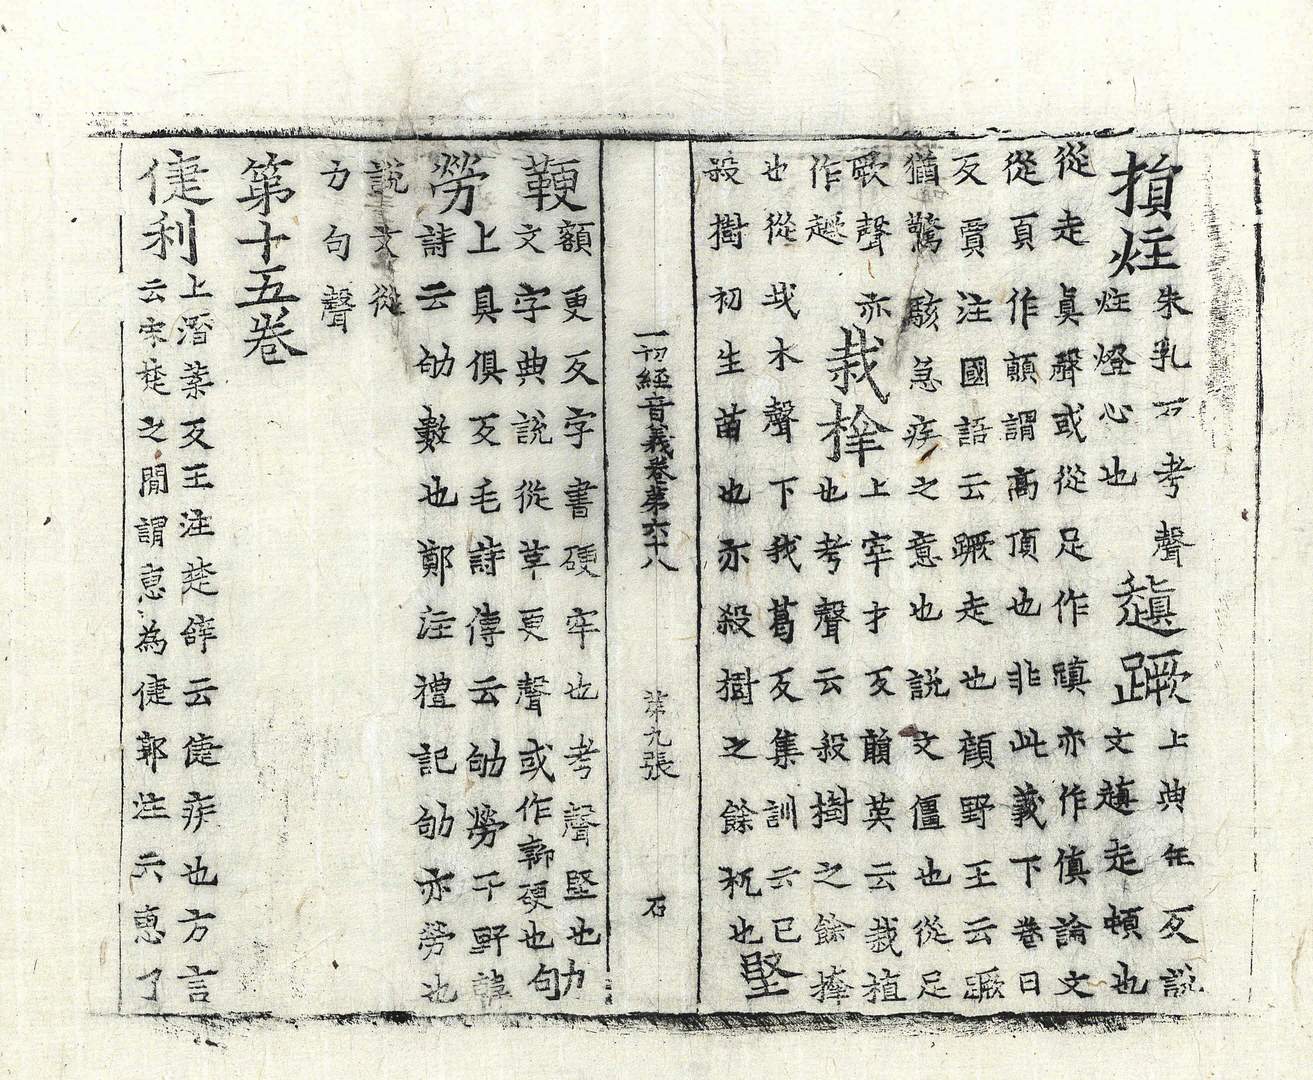 揁炷朱乳反考聲
炷燈心也
趝蹶上典年反說
文趝走頓也
從走眞聲或從足作蹎亦作傎論文
從頁作顛謂高頂也非此義下卷日
反賈注國語云蹶走也顧野王云蹶
猶驚駭急疾之意也說文僵也從足
厥聲亦
作趰
栽桙上宰才反韻英云栽植
也考聲云殺樹之餘捧
也從𢦏木聲下我葛反集訓云已
殺樹初生苗也亦殺樹之餘杌也
堅
一切經音義卷第六十八 第九張 石
鞕額更反字書硬牢也考聲堅也
文字典說從革更聲或作䩕硬也
劬
勞上具俱反毛詩傳云劬勞于野韓
詩云劬數也鄭注禮記劬亦勞也
說文從
力句聲
第十五卷
倢利上潛葉反王注楚辭云倢疾也方言
云宋楚之閒謂惠為倢郭注云惠了